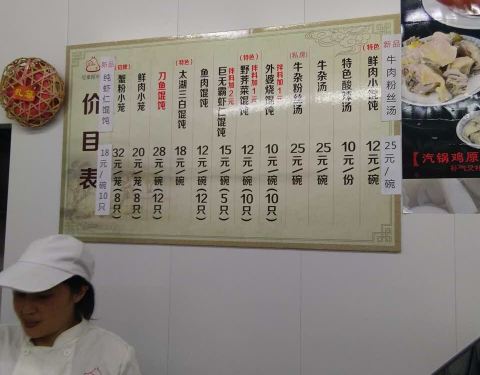 价目表
新品
纯虾仁馄饨
18元/碗
10只
(招牌)
蟹粉小笼
32元/笼(8只)
鲜肉小笼
20元/笼(8只)
(特色)
刀鱼馄饨
28元/碗(12只)
太湖三白馄饨
18元/碗
鱼肉馄饨
12元/碗(12只)
巨无霸虾仁馄饨
拌料加2元
15元/碗(5只)
(特色)
野荠菜馄饨
拌料加1元
12元/碗(10只)
外婆烧馄饨
拌料加1元
10元/碗(10只)
(私房)
牛杂粉丝汤
25元/碗
牛杂汤
25元/碗
特色酸辣汤
10元/份
(特色)
鲜肉小馄饨
12元/碗
新品
牛肉粉丝汤
25元/碗
【汽锅鸡原